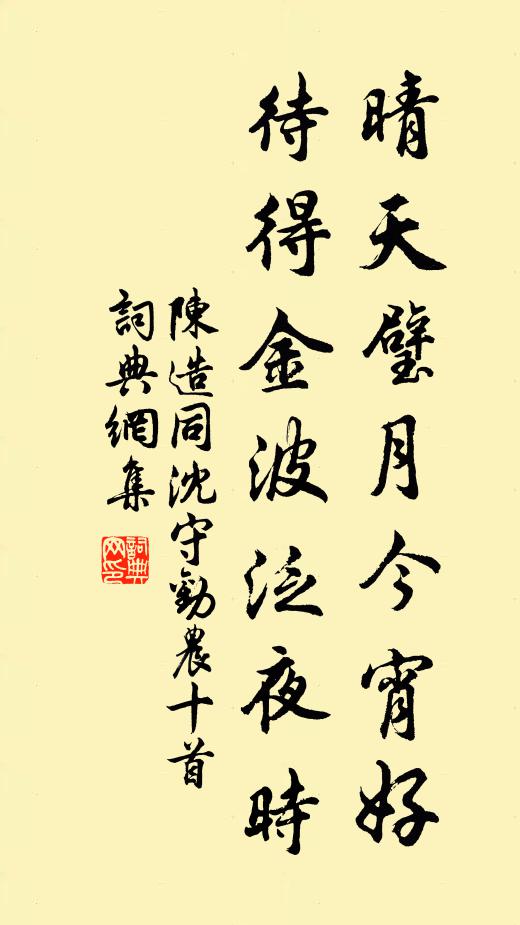 晴天璧月今宵好
待得金波泛夜時
陳造同沈守勸農十首
詞典網集
詞典網印